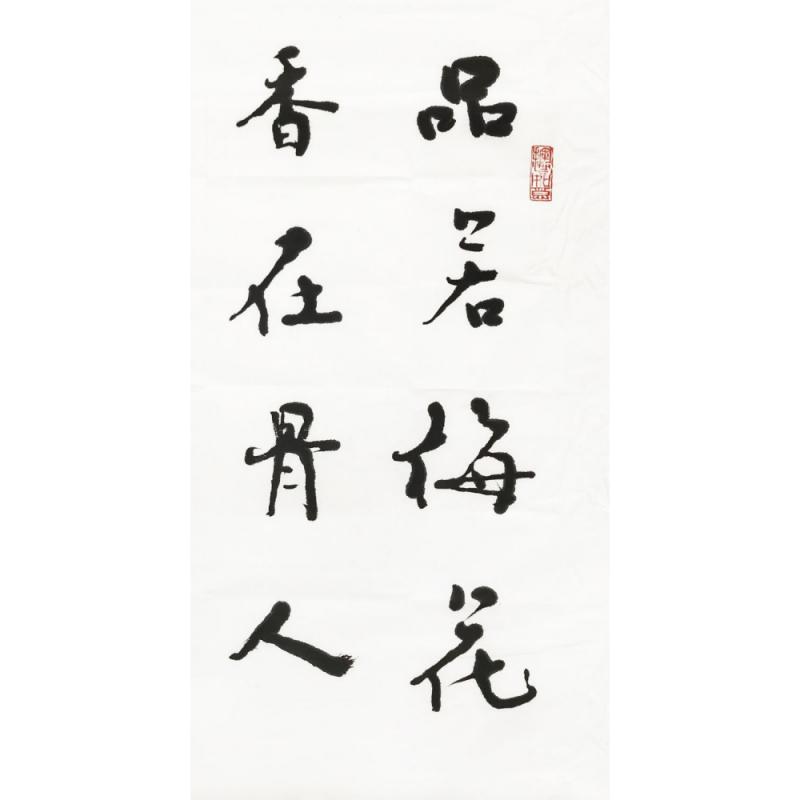 品若梅花
香在骨人